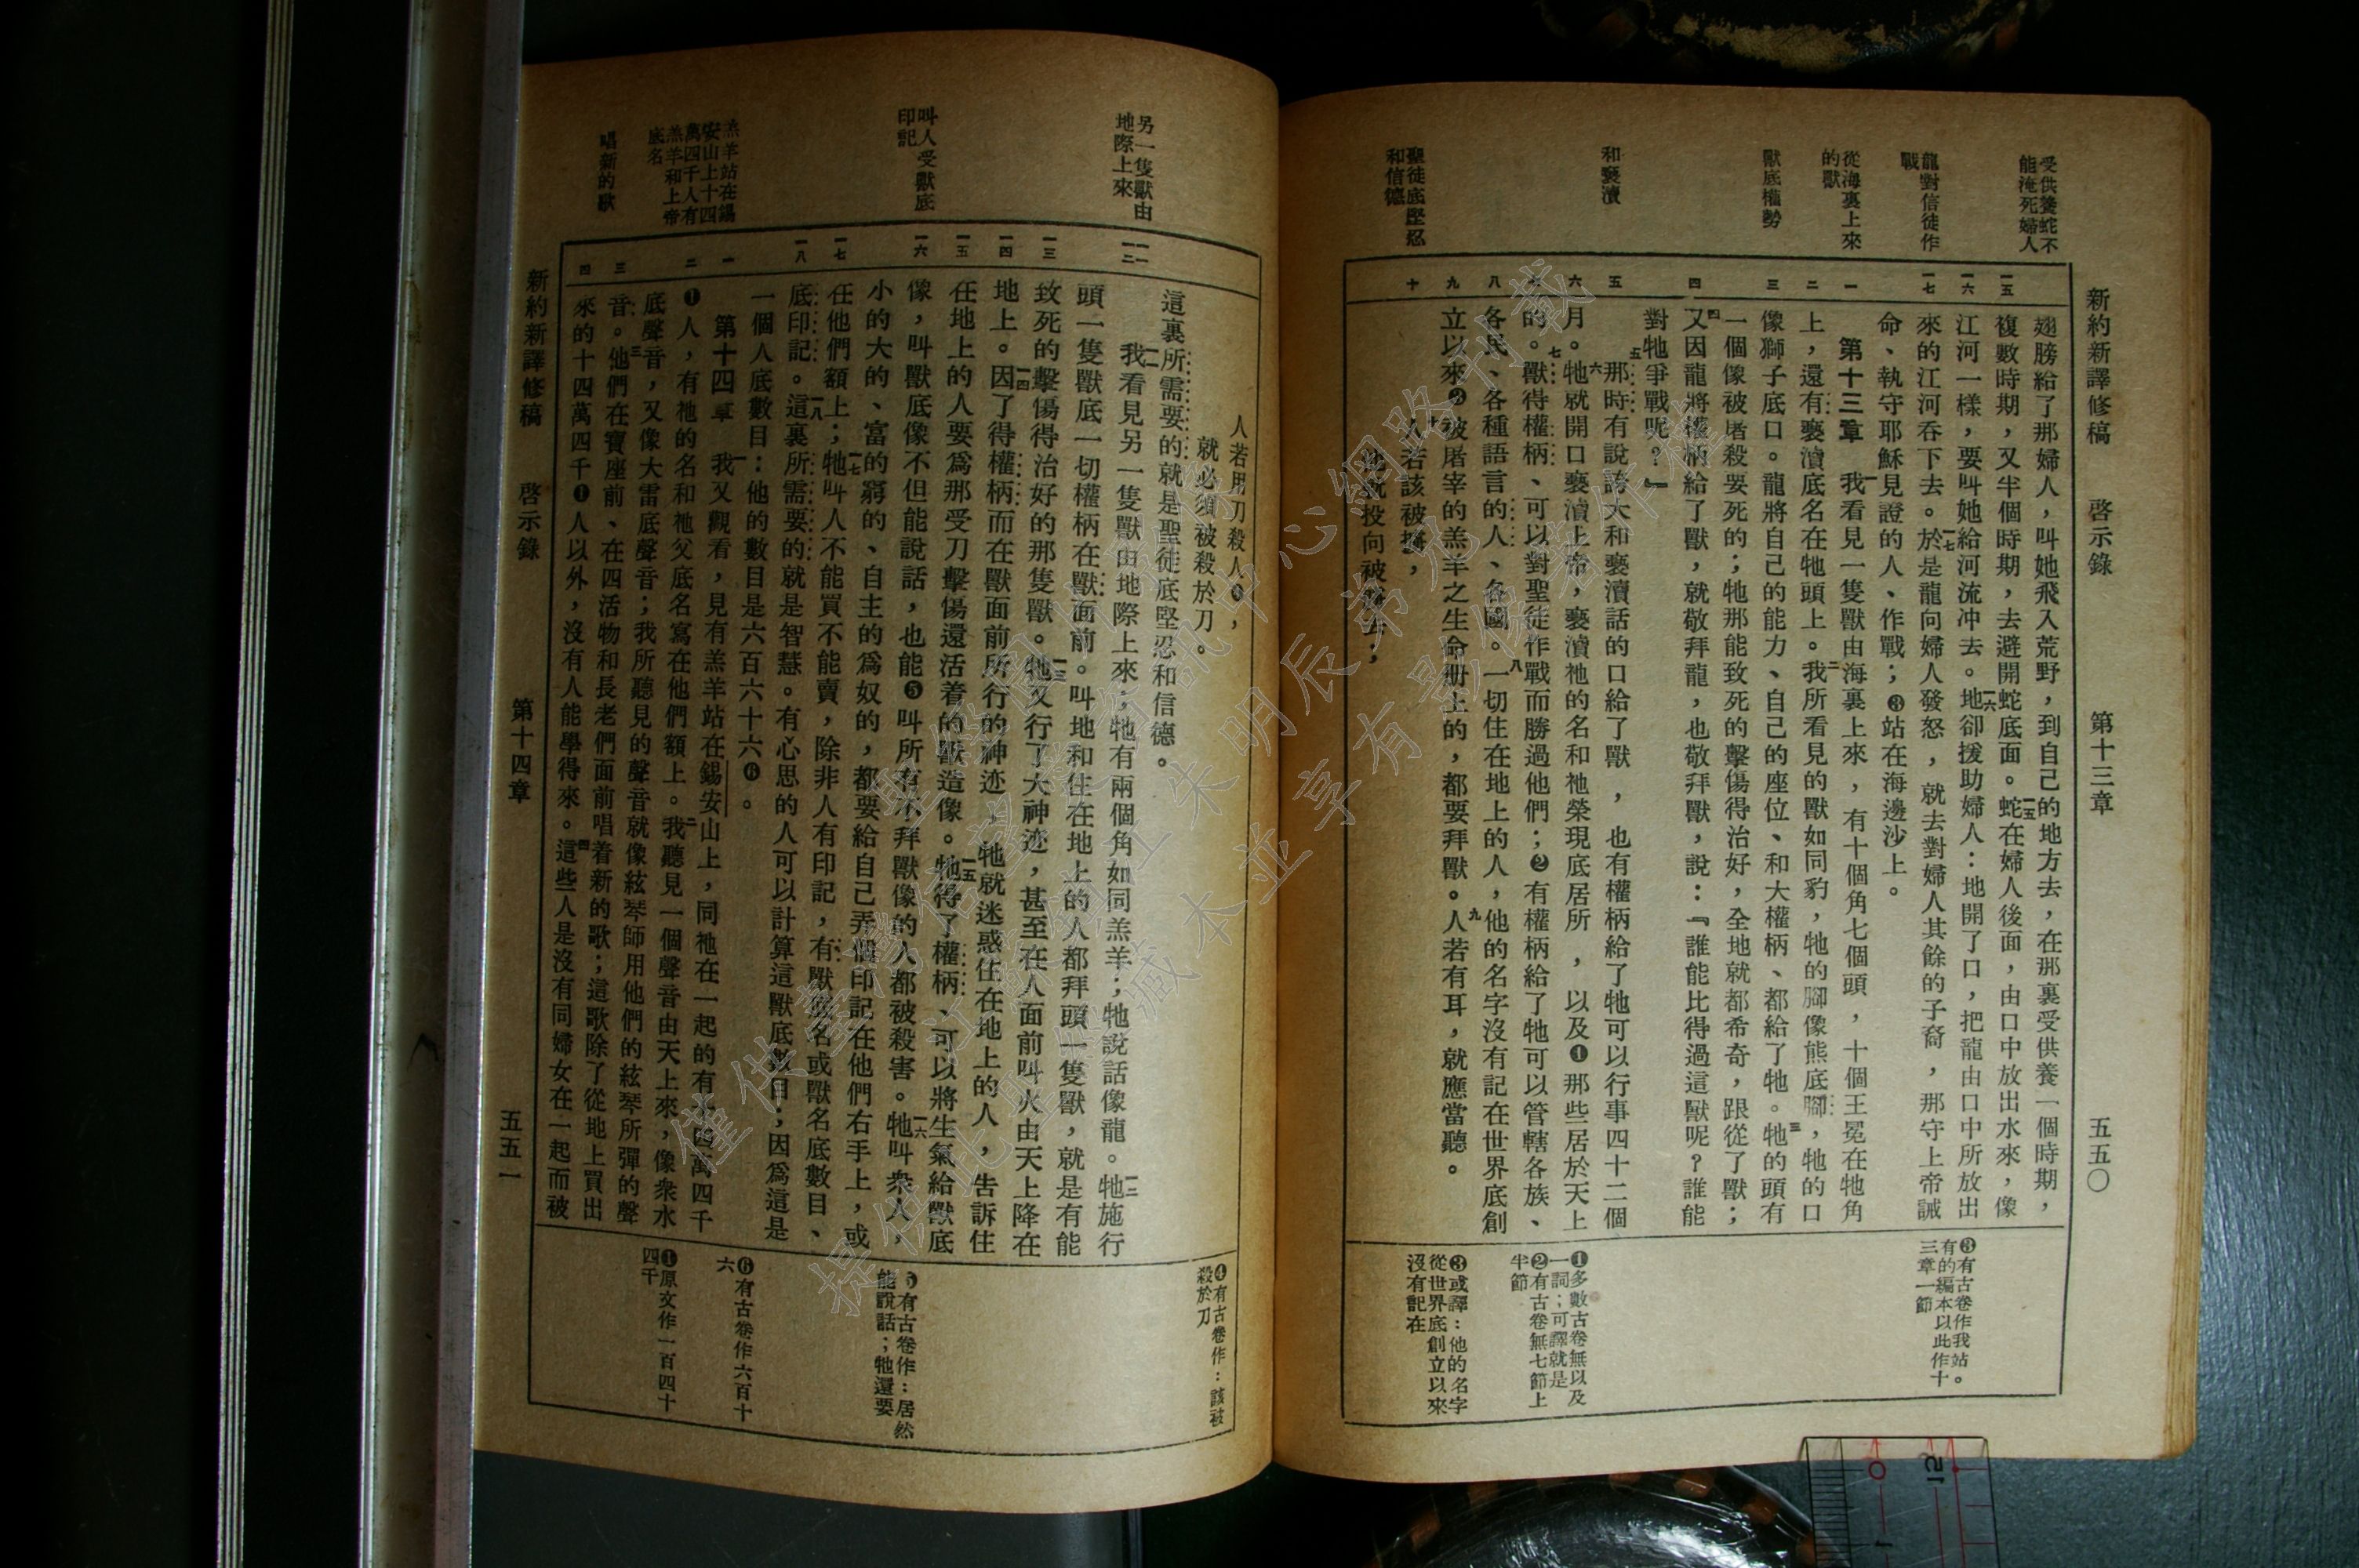 新約新譯修稿　啓示錄　第十三章　五五〇
受供養蛇不
能淹死婦人
龍對信徒作
戰
從海裏上來
的獸
獸底權勢
和褻瀆
聖徒底堅忍
和信德
一五
一六
一七
一
二
三
四
五
六
七
八
九
十
翅膀給了那婦人，叫她飛入荒野，到自己的地方去，在那裏受供養一個時期，
複數時期，又半個時期，去避開蛇底面。一五蛇在婦人後面，由口中放出水來，像
江河一樣，要叫她給河流冲去。一六地卻援助婦人：地開了口，把龍由口中所放出
來的江河吞下去。一七於是龍向婦人發怒，就去對婦人其餘的子裔，那守上帝誡
命、執守耶穌見證的人、作戰；❸站在海邊沙上。
第十三章　一我看見一隻獸由海裏上來，有十個角七個頭，十個王冕在牠角
上，還有褻瀆底名在牠頭上。二我所看見的獸如同豹，牠的腳像熊底腳，牠的口
像獅子底口。龍將自己的能力、自己的座位、和大權柄、都給了牠。三牠的頭有
一個像被屠殺要死的；牠那能致死的擊傷得治好，全地就都希奇，跟從了獸；
四又因龍將權柄給了獸，就敬拜龍，也敬拜獸，說：『誰能比得過這獸呢？誰能
對牠爭戰呢？』
五那時有說誇大和褻瀆話的口給了獸，也有權柄給了牠可以行事四十二個
月。六牠就開口褻瀆上帝，褻瀆祂的名和祂榮現底居所，以及❶那些居於天上
的。七獸得權柄、可以對聖徒作戰而勝過他們；❷有權柄給了牠可以管轄各族、
各民、各種語言的人、各國。八一切住在地上的人，他的名字沒有記在世界底創
立以來❸被屠宰的羔羊之生命册上的，都要拜獸。九人若有耳，就應當聽。
十人若該被擄，
他就投向被擄去；
❸有古卷作我站。
有的編本以此作十
三章一節
❶多數古卷無以及
一詞；可譯就是
❷有古卷無七節上
半節
❸或譯：他的名字
從世界底創立以來
沒有記在
另一隻獸由
地際上來
叫人受獸底
印記
羔羊站在錫
安山上十四
萬四千人有
羔羊和上帝
底名
唱新的歌
一一
一二
一三
一四
一五
一六
一七
一八
一
二
三
四
人若用刀殺人❹，
就必須被殺於刀。
這裏所需要的就是聖徒底堅忍和信德。
一一我看見另一隻獸由地際上來；牠有兩個角如同羔羊；牠說話像龍。一二牠施行
頭一隻獸底一切權柄在獸面前。叫地和住在地上的人都拜頭一隻獸，就是有能
致死的擊傷得治好的那隻獸。一三牠又行了大神迹，甚至在人面前叫火由天上降在
地上。一四因了得權柄而在獸面前所行的神迹，牠就迷惑住在地上的人，告訴住
在地上的人要爲那受刀擊傷還活着的獸造像。一五牠得了權柄、可以將生氣給獸底
像，叫獸底像不但能說話，也能❺叫所有不拜獸像的人都被殺害。一六牠叫衆人，
小的大的、富的窮的、自主的爲奴的，都要給自己弄個印記在他們右手上，或
在他們額上；一七牠叫人不能買不能賣，除非人有印記，有獸底名或獸名底數目、
底印記。一八這裏所需要的就是智慧。有心思的人可以計算這獸底數目；因爲這是
一個人底數目：他的數目是六百六十六❻。
第十四章　一我又觀看，見有羔羊站在錫安山上，同祂在一起的有十四萬四千
❶人，有祂的名和祂父底名寫在他們額上。二我聽見一個聲音由天上來，像衆水
底聲音，又像大雷底聲音；我所聽見的聲音就像絃琴師用他們的絃琴所彈的聲
音。三他們在寶座前、在四活物和長老們面前唱着新的歌；這歌除了從地上買出
來的十四萬四千❶人以外，沒有人能學得來。四這些人是沒有同婦女在一起而被
❹有古卷作：該被
殺於刀
❺有古卷作：居然
能說話；牠還要
❻有古卷作六百十
六
❶原文作一百四十
四千
新約新譯修稿　啓示錄　第十四章　五五一